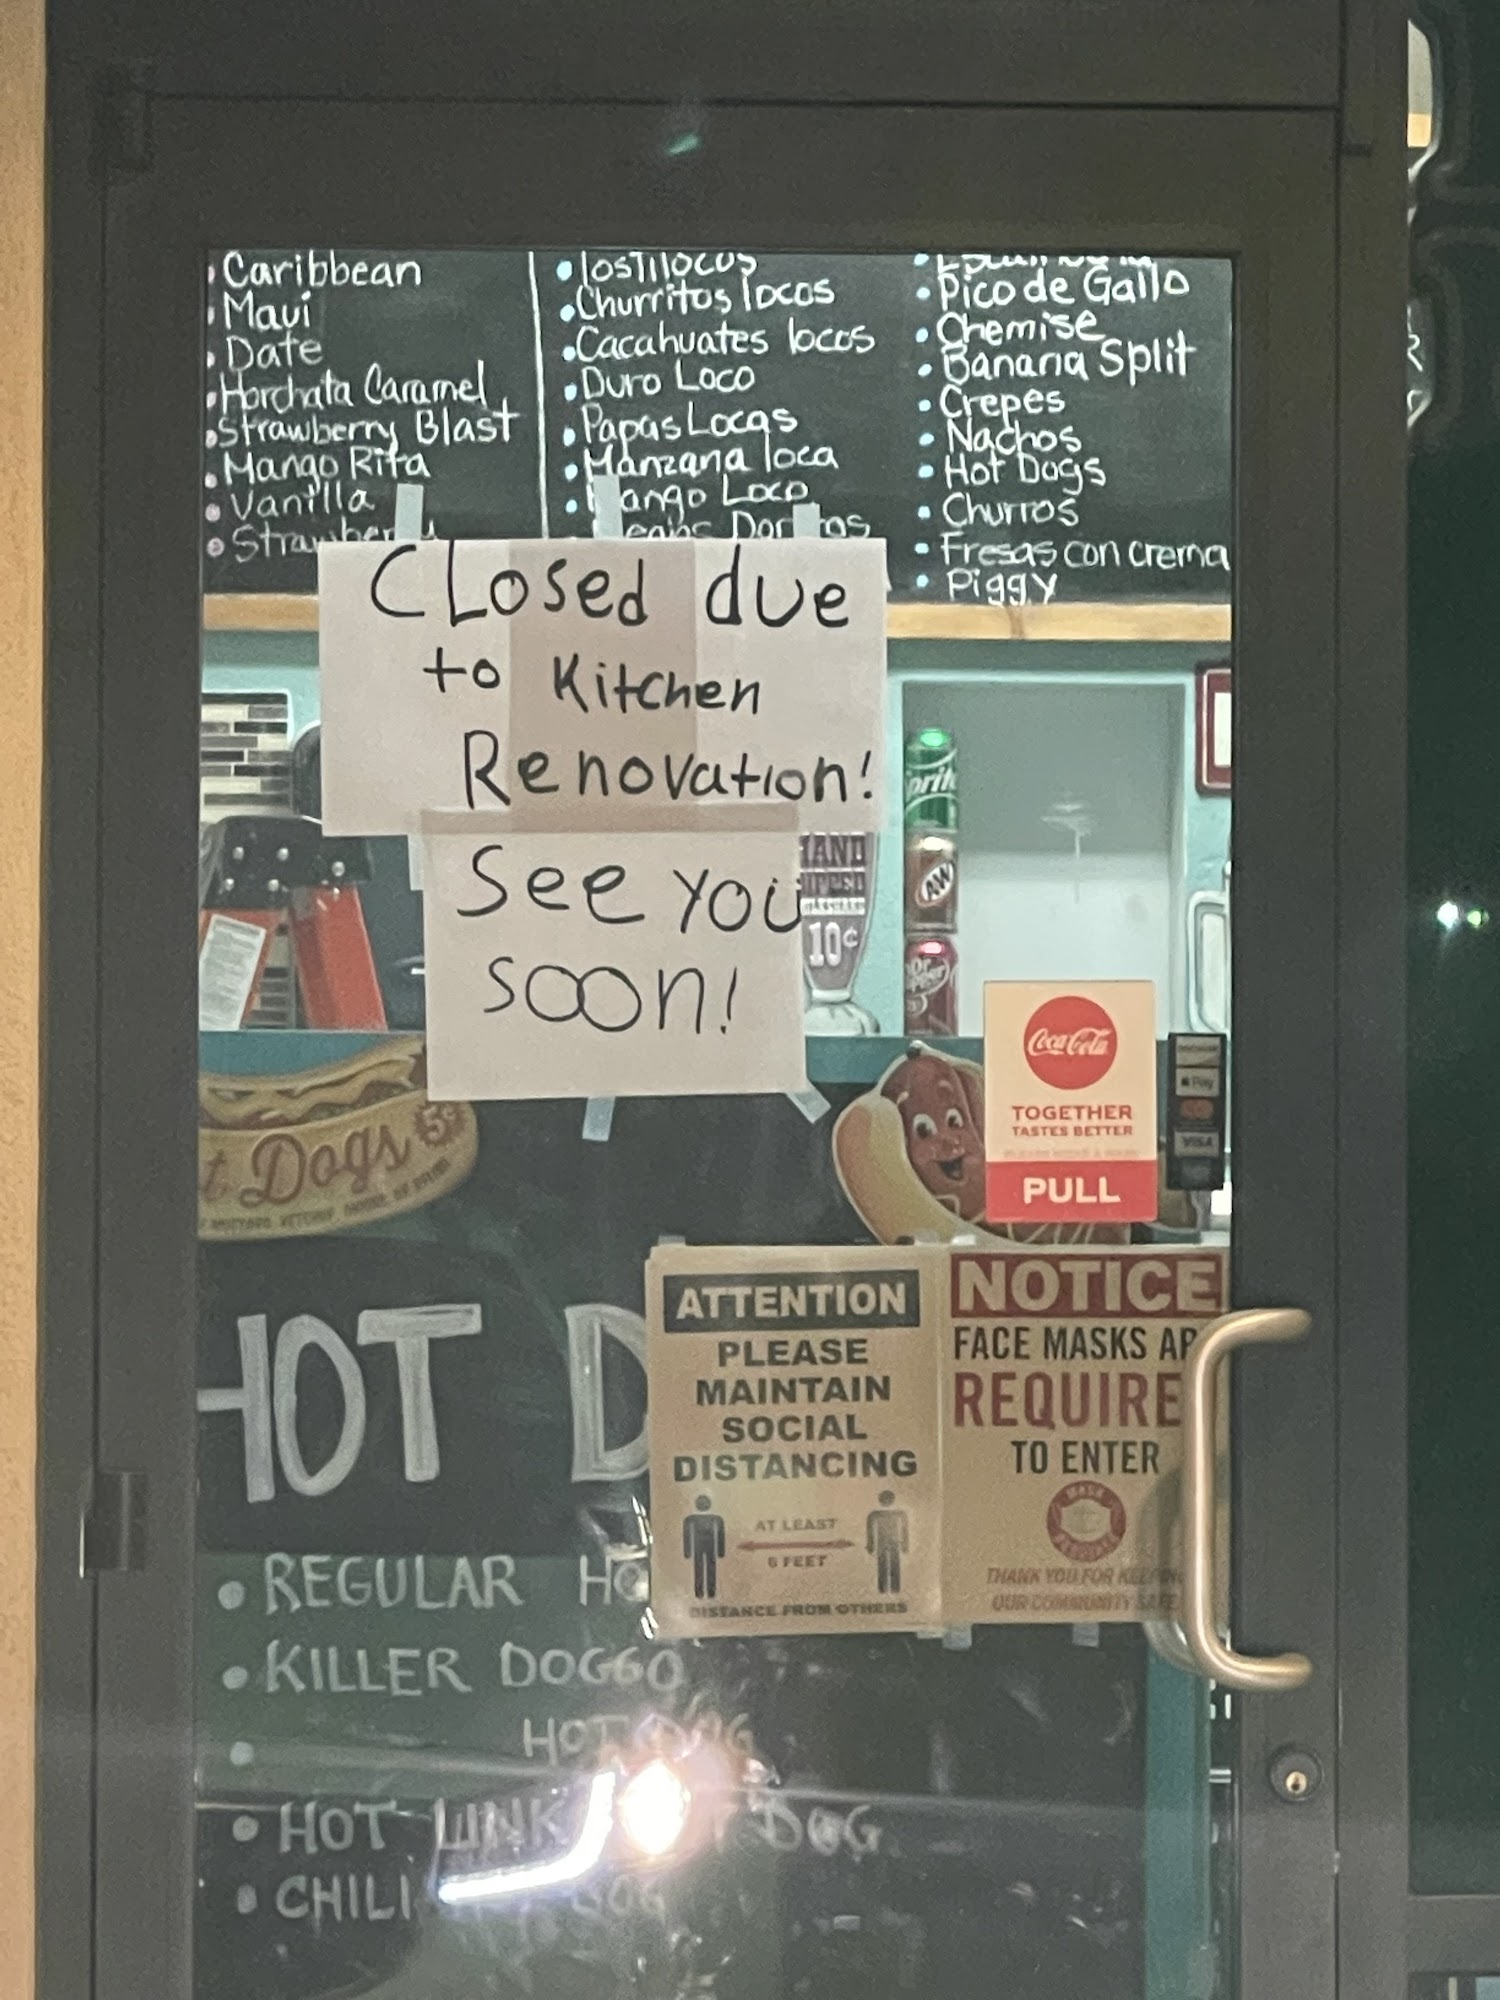 Caribbean
Maui
Date
Horchata Caramel
Strawberry Blast
Mango Rita
Vanilla
Tostilocos
Churritos locos
Cacahuates locos
Duro Loco
Papas Locas
Manzana loca
Mango Loco
Pico de Gallo
Chemise
Banana Split
Crepes
Nachos
Hot Dogs
Churros
Fresas con crema
Piggy
Closed due
to Kitchen
Renovation!
See you
soon!
10¢
A&W
Dr Pepper
Dogs 5¢
Coca-Cola
TOGETHER
TASTES BETTER
PULL
Pay
VISA
ATTENTION
PLEASE
MAINTAIN
SOCIAL
DISTANCING
AT LEAST
6 FEET
DISTANCE FROM OTHERS
NOTICE
FACE MASKS
REQUIRE
TO ENTER
MASK
REQUIRED
THANK YOU FOR KEEPING
OUR COMMUNITY SAFE
HOT D
REGULAR HO
KILLER DOGGO
HOT DOG
HOT LINK DOG
CHILI DOG